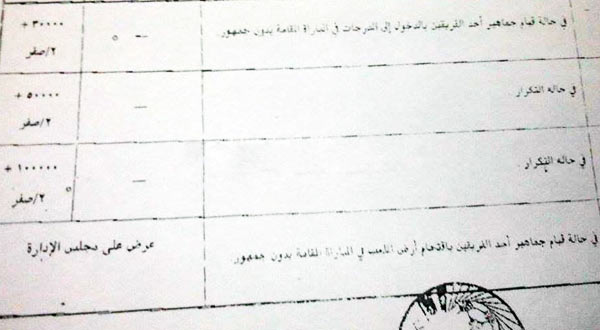 في حالة قيام جماهير أحد الفريقين بالدخول إلى المدرجات في المباراة المقامة بدون جمهور
—
٣٠٠٠٠ +
٢/صفر
في حاله التكرار
—
٥٠٠٠٠ +
٢/صفر
في حاله التكرار
—
١٠٠٠٠٠ +
٢/صفر
في حالة قيام جماهير أحد الفريقين باقتحام أرض الملعب في المباراة المقامة بدون جمهور
عرض على مجلس الإدارة